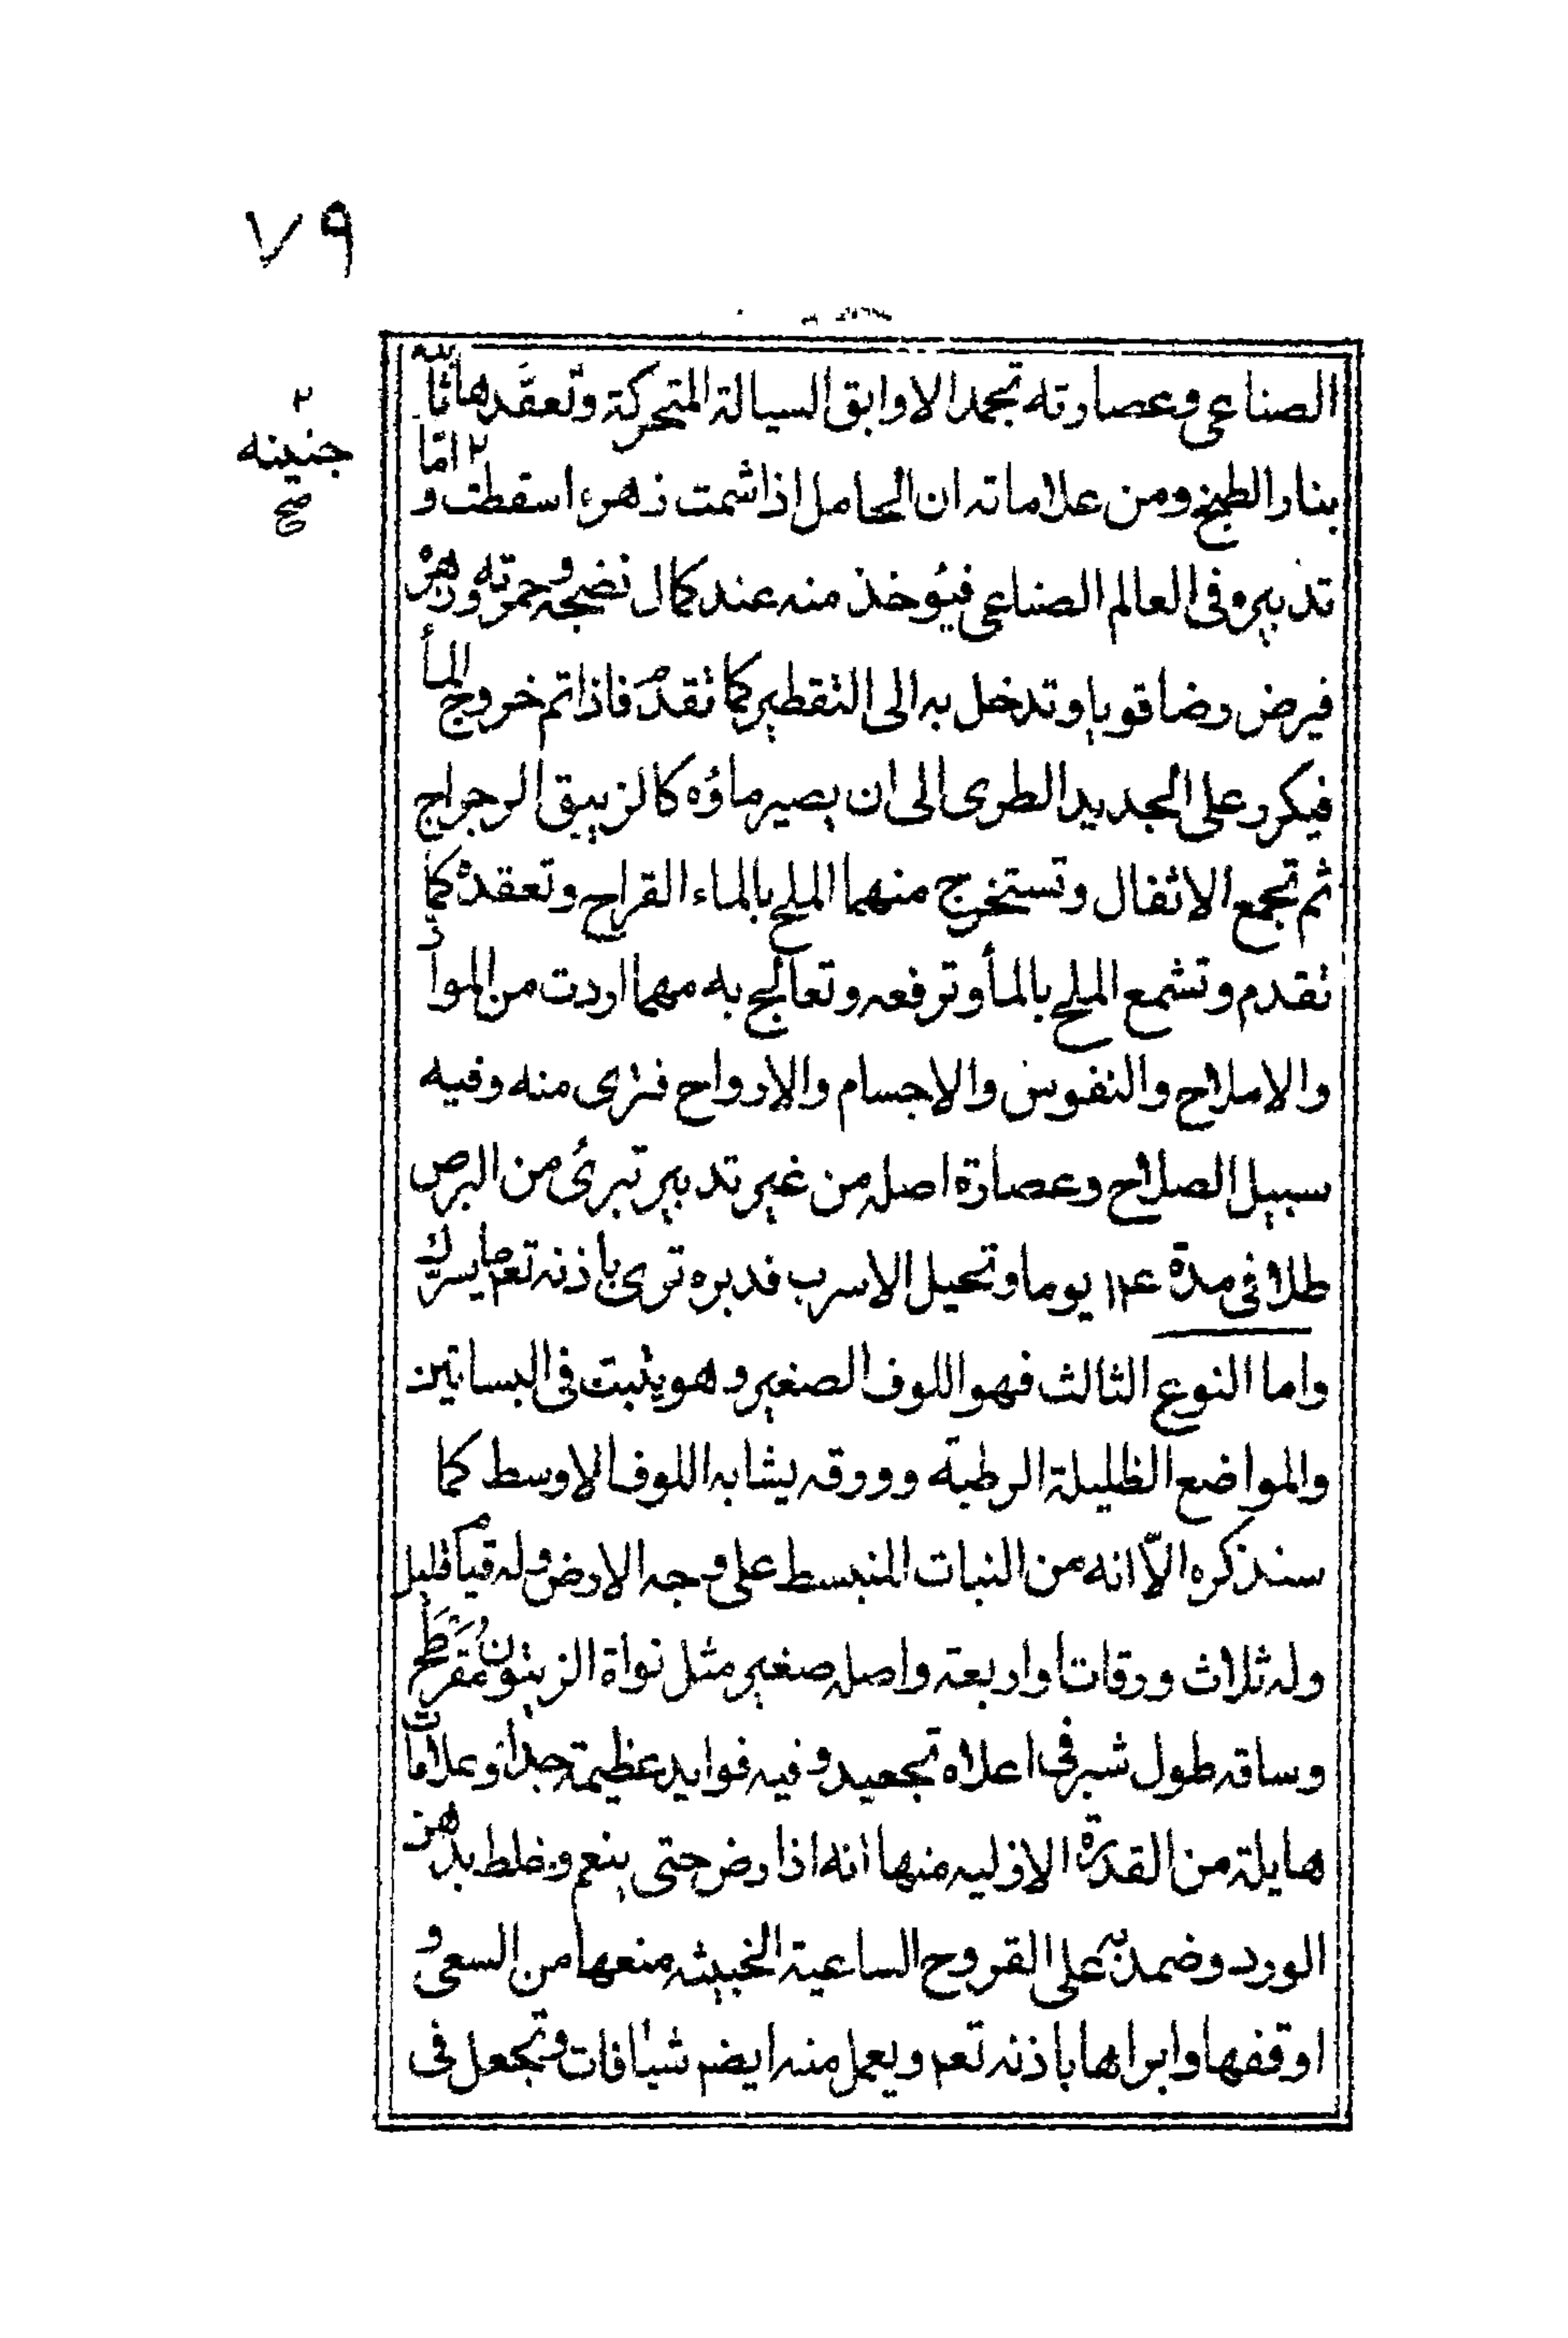 ٧٩
الصناعي وعصارته تجمد الاوابق السيالة المتحركة وتعقدها ثانية
بنار الطبخ ومن علاماته ان الحامل اذا شمت زهره اسقطت ٢ واما
٢
جنينه
صح
تدبيره في العالم الصناعي فيؤخذ منه عند كمال نضجه وحمرته وزهره
فيرض رضا قويا وتدخل به الى التقطير كما تقدم فاذا تم خروج المأ
فيكرر على الجديد الطرى الى ان يصير ماؤه كالزيبق الرجراج
ثم تجمع الاثفال وتستخرج منهما الملح بالماء القراح وتعقده كما
تقدم وتشمع الملح بالمأ وترفعه وتعالج به مهما اردت من المواد
والاملاح والنفوس والاجسام والارواح فترى منه وفيه
سبيل الصلاح وعصارة اصله من غير تدبير تبرئ من البرص
طلا في مدة ١٢٤ يوما وتحيل الاسرب فدبره ترى باذنه تعم ما يسرك
واما النوع الثالث فهو اللوف الصغير وهو ينبت في البساتين
والمواضع الظليلة الرطبة وورقه يشابه اللوف الاوسط كما
سنذكره الّا انه من النبات المنبسط على وجه الارض وله قيام قليل
وله ثلاث ورقات او اربعة واصله صغير مثل نواة الزيتون مُفَرطَح
وساقه طول شبر في اعلاه تجعيد وفيه فوايد عظيمة جدا وعلامات
هايلة من القدرة الازليه منها انه اذا رض حتى ينعم وخلط بدهن
الورد وضمد به على القروح الساعية الخبيثه منعها من السعي و
اوقفها وابراها باذنه تعم ويعمل منه ايضم شيافات وتجعل في